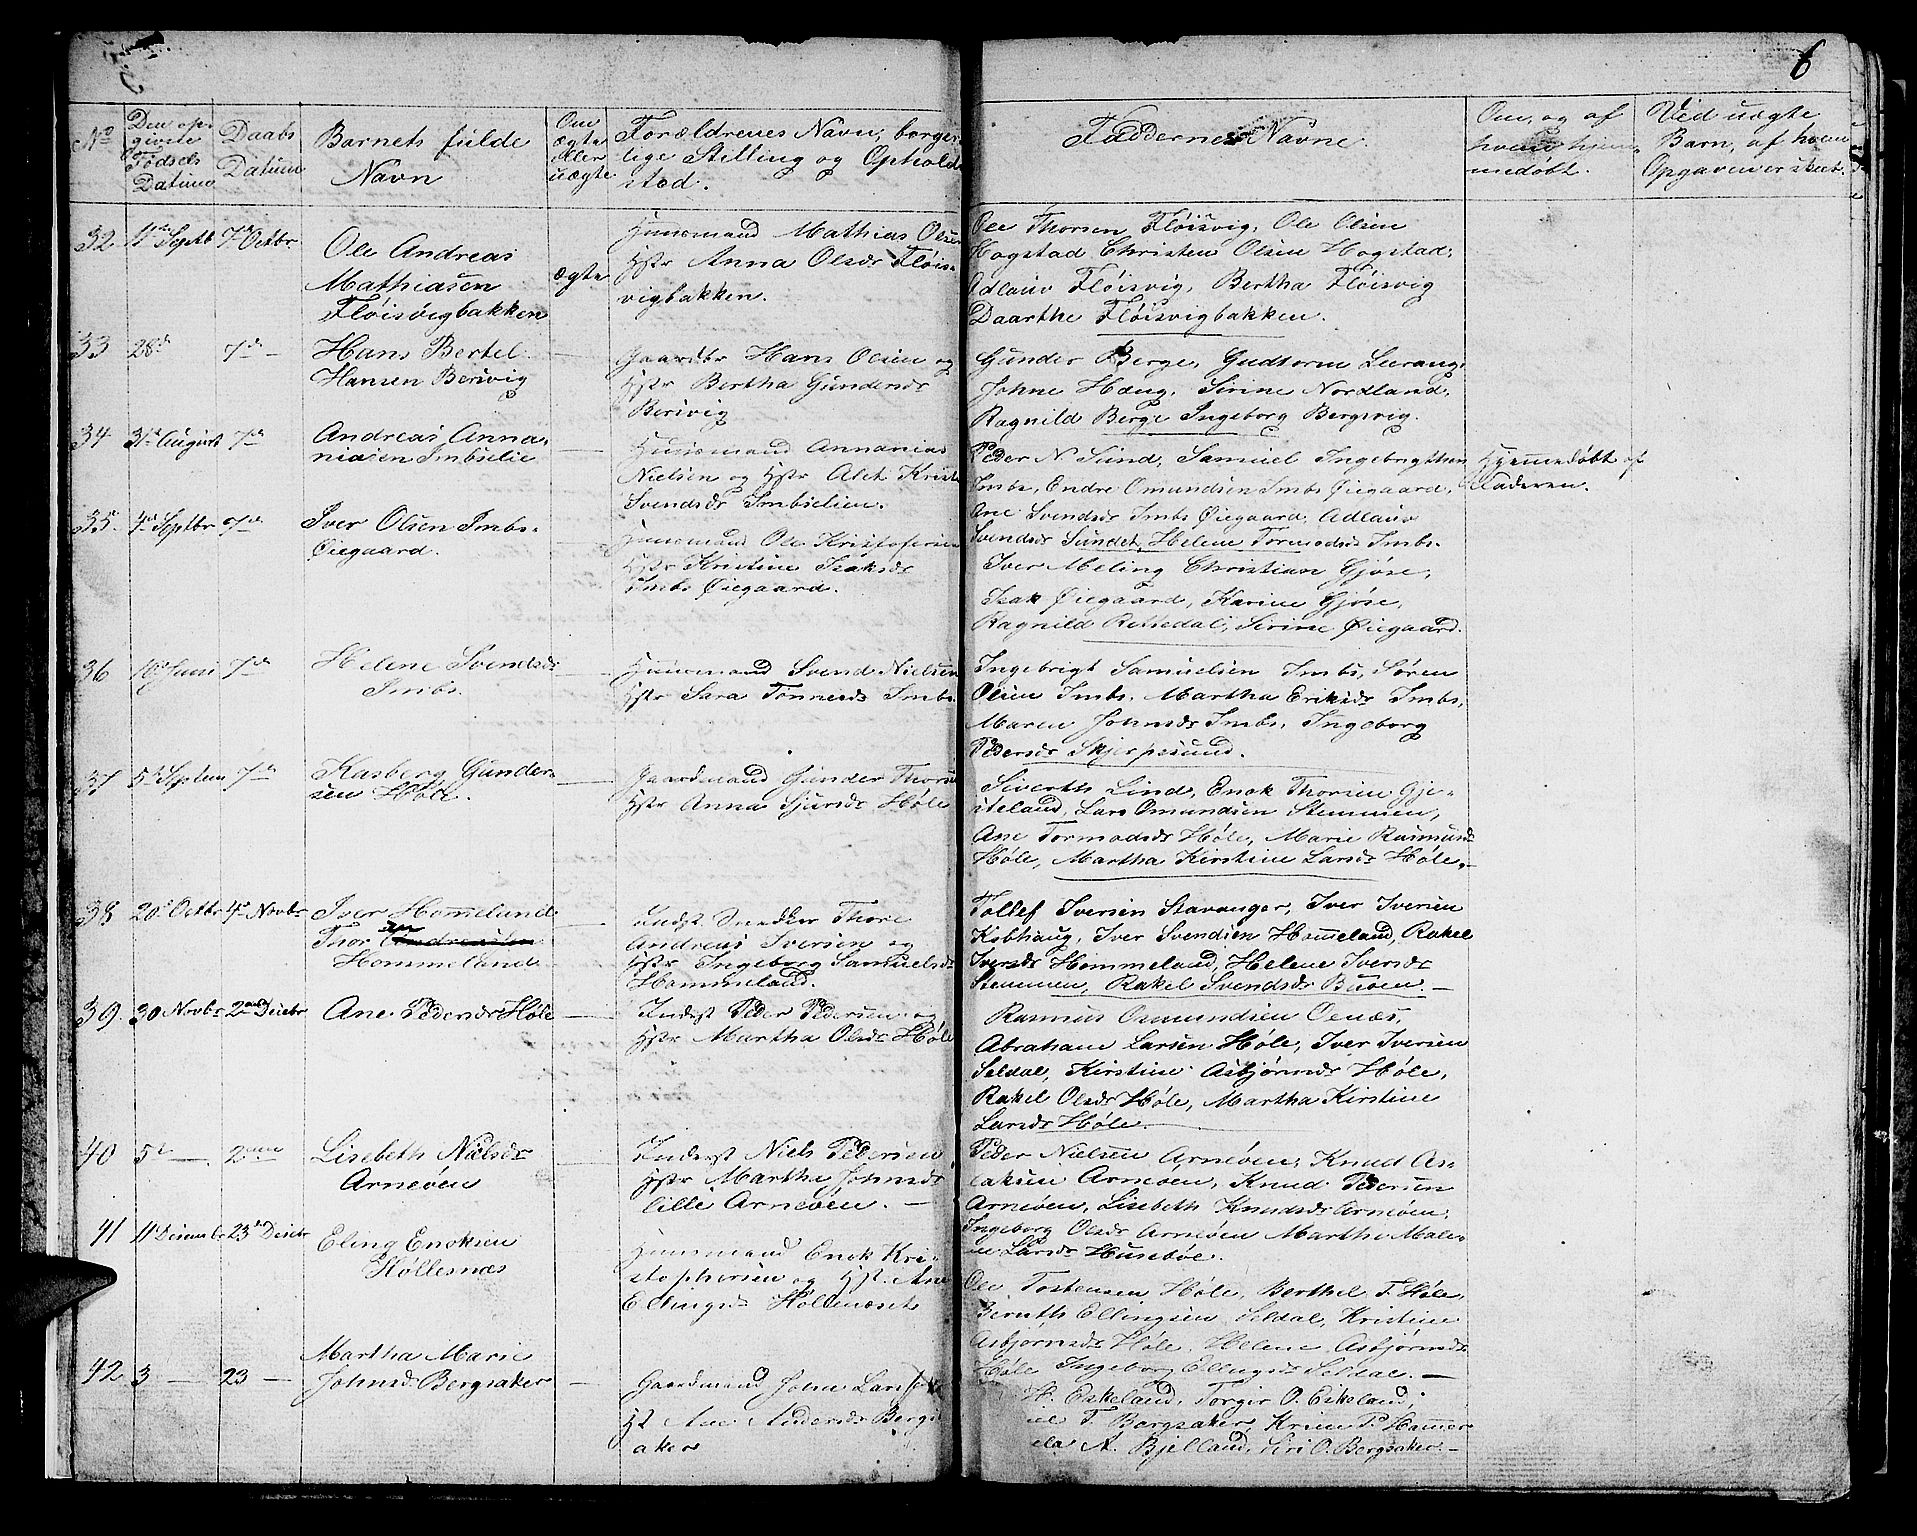 6
No
Den op-
givne
Fødsels
Datum
Daabs
Datum
Barnets fulde
Navn
Om
ægte
eller
uægte
Forældrenes Navn, borger-
lige Stilling og Opholds
sted.
Faddernes Navne.
Om, og af
hvem hjem-
medøbt.
Ved uægte
Barn, af hvem
Opgaven er skeet.
32 7de Octbr
Ole Andreas
Mathiasen
Fløisvigbakken
ægte
Huusmand Mathias Olsen
Hstr Anna Olsdr Fløis-
vigbakken.
Ole Thorsen Fløisvig, Ole Olsen
Hogstad Christen Olsen Hogstad,
Adlauv Fløisvig, Bertha Fløisvig
Daarthe Fløisvigbakken.
33 28de 7de —
Hans Bertel
Hansen Bersvig
—
Gaardbr Hans Olsen og
Hstr Bertha Gundersdr
Bersvig
Gunder Berge, Gudtorm Leerang,
Johne Haug, Sirine Nordland,
Ragnild Berge Ingeborg Bergsvig.
34 31te August 7de
Andreas Anna-
niasen Imbslie
—
Huusmand Annanias
Nielsen og Hstr Alet Krist
Svendsdr Imbslien.
Peder N Sund, Samuel Ingebrigtsen
Imbs, Endre Omundsen Imbs Øiegaard,
Ane Svendsdr Imbs Øiegaard, Adlauv
Svendsdr Sundet, Helene Tormodsdr Imbs.
Hjemmedøbt af
Faderen.
35. 4de Septbr 7de
Iver Olsen Imbs-
Øiegaard.
Huusmand Ole Kristofersen
Hstr Kristine Isaksdr
Imbs Øiegaard.
Iver Meling Christian Gjøse,
Isak Øiegaard, Karine Gjøse,
Ragnild Retsedal, Sirine Øiegaard.
36 Juni 7de
Helene Svendsdr
Imbs.
—
Huusmand Svend Nielsen
Hstr Sara Tønnesdr Imbs.
Ingebrigt Samuelsen Imbs, Søren
Olsen Imbs, Martha Eriksdr Imbs,
Maren Johnsdr Imbs, Ingeborg
Pedersdr Skjerpesund.
37 5te Septem 7de
Kasberg Gunder-
sen Høle.
—
Gaardmand Gunder Thorsen
Hstr Anna Sjursdr Høle
Siverth Lind, Enok Thorsen Gje-
steland, Lars Omundsen Stemmen,
Ane Tormodsdr Høle, Marie Rasmusdr
Høle, Martha Kirstine Larsdr Høle.—
38 20de Octbr 4de Novbr
Iver Hommeland
Thor
Hommeland
—
Indst Snedker Thore
Andreas Iversen og
Hstr Ingeborg Samuelsdr
Hommeland.
Tollef Iversen Stavanger, Iver Iversen
Kobhaug, Iver Svendsen Hommeland, Rakel
Iversdr Hommeland, Helene Iversdr
Stemmen, Rakel Svendsdr Buoen.—
39. 30 Novbr 2den Decbr
Ane Pedersdr Høle
—
Inderst Peder Pedersen og
Hstr Martha Olsdr Høle
Rasmus Osmundsen Oenæs,
Abraham Larsen Høle, Iver Iversen
Seldal, Kirstine Asbjørnsdr Høle,
Rakel Olsdr Høle, Martha Kirstine
Larsdr Høle.—
40 5te —. 2den
Lisebeth Nielsdr
Arneøen
—
Inderst Niels Pedersen
Hstr Martha Johnsdr
lille Arneøen. —
Peder Nielsen Arneøen, Knud As-
laksen Arneøen, Knud Pedersen
Arneøen, Lisebeth Knudsdr Arneøen,
Ingeborg Olsdr Arneøen Martha Male-
ne Larsdr Husebøe.
41 23de Decbr
Eling Enoksen
Høllesnæs
Huusmand Enok Kri-
stophersen og Hst. Ane
Ellingsdr Høllenæset
Ole Tostensen Høle, Berthel T. Høle,
Bernth Ellingsen Seldal, Kristine
Asbjørnsdr Høle, Helene Asbjørnsdr
Høle Ingeborg Ellingsdr Seldal. —
42 3 — 23 —
Martha Marie
Johnsd. Bergsaker
—
Gaardmand John Larsen
Hst Ane Andersdr Bergs-
aker
H. Eskeland, Torgir O. Eskeland,
T. Bergsaker, Kriun P. Hommer
A. Bjelland, Siri O. Bergsaker.—